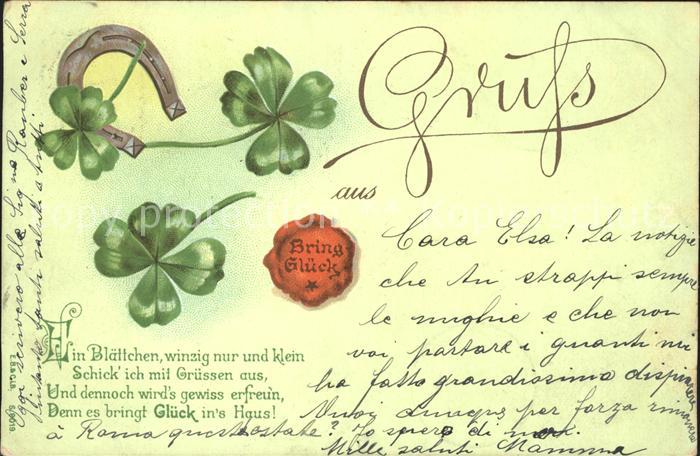 Gruß
aus
Bring
Glück
Ein Blättchen, winzig nur und klein
Schick' ich mit Grüssen aus,
Und dennoch wird's gewiss erfreu'n,
Denn es bringt Glück in's Haus!
Cara Elsa! La notizie
che tu strappi sempre
le unghie e che non
vuoi portare i guanti mi
ha fatto grandissimo dispiacere
Vuoi dunque per forza rimanere
à Roma quest'estate? Io spero di no.
Mille saluti Mamma
Oggi scriverò alla Sig.na Rauber e Serra
tanti saluti a tutti